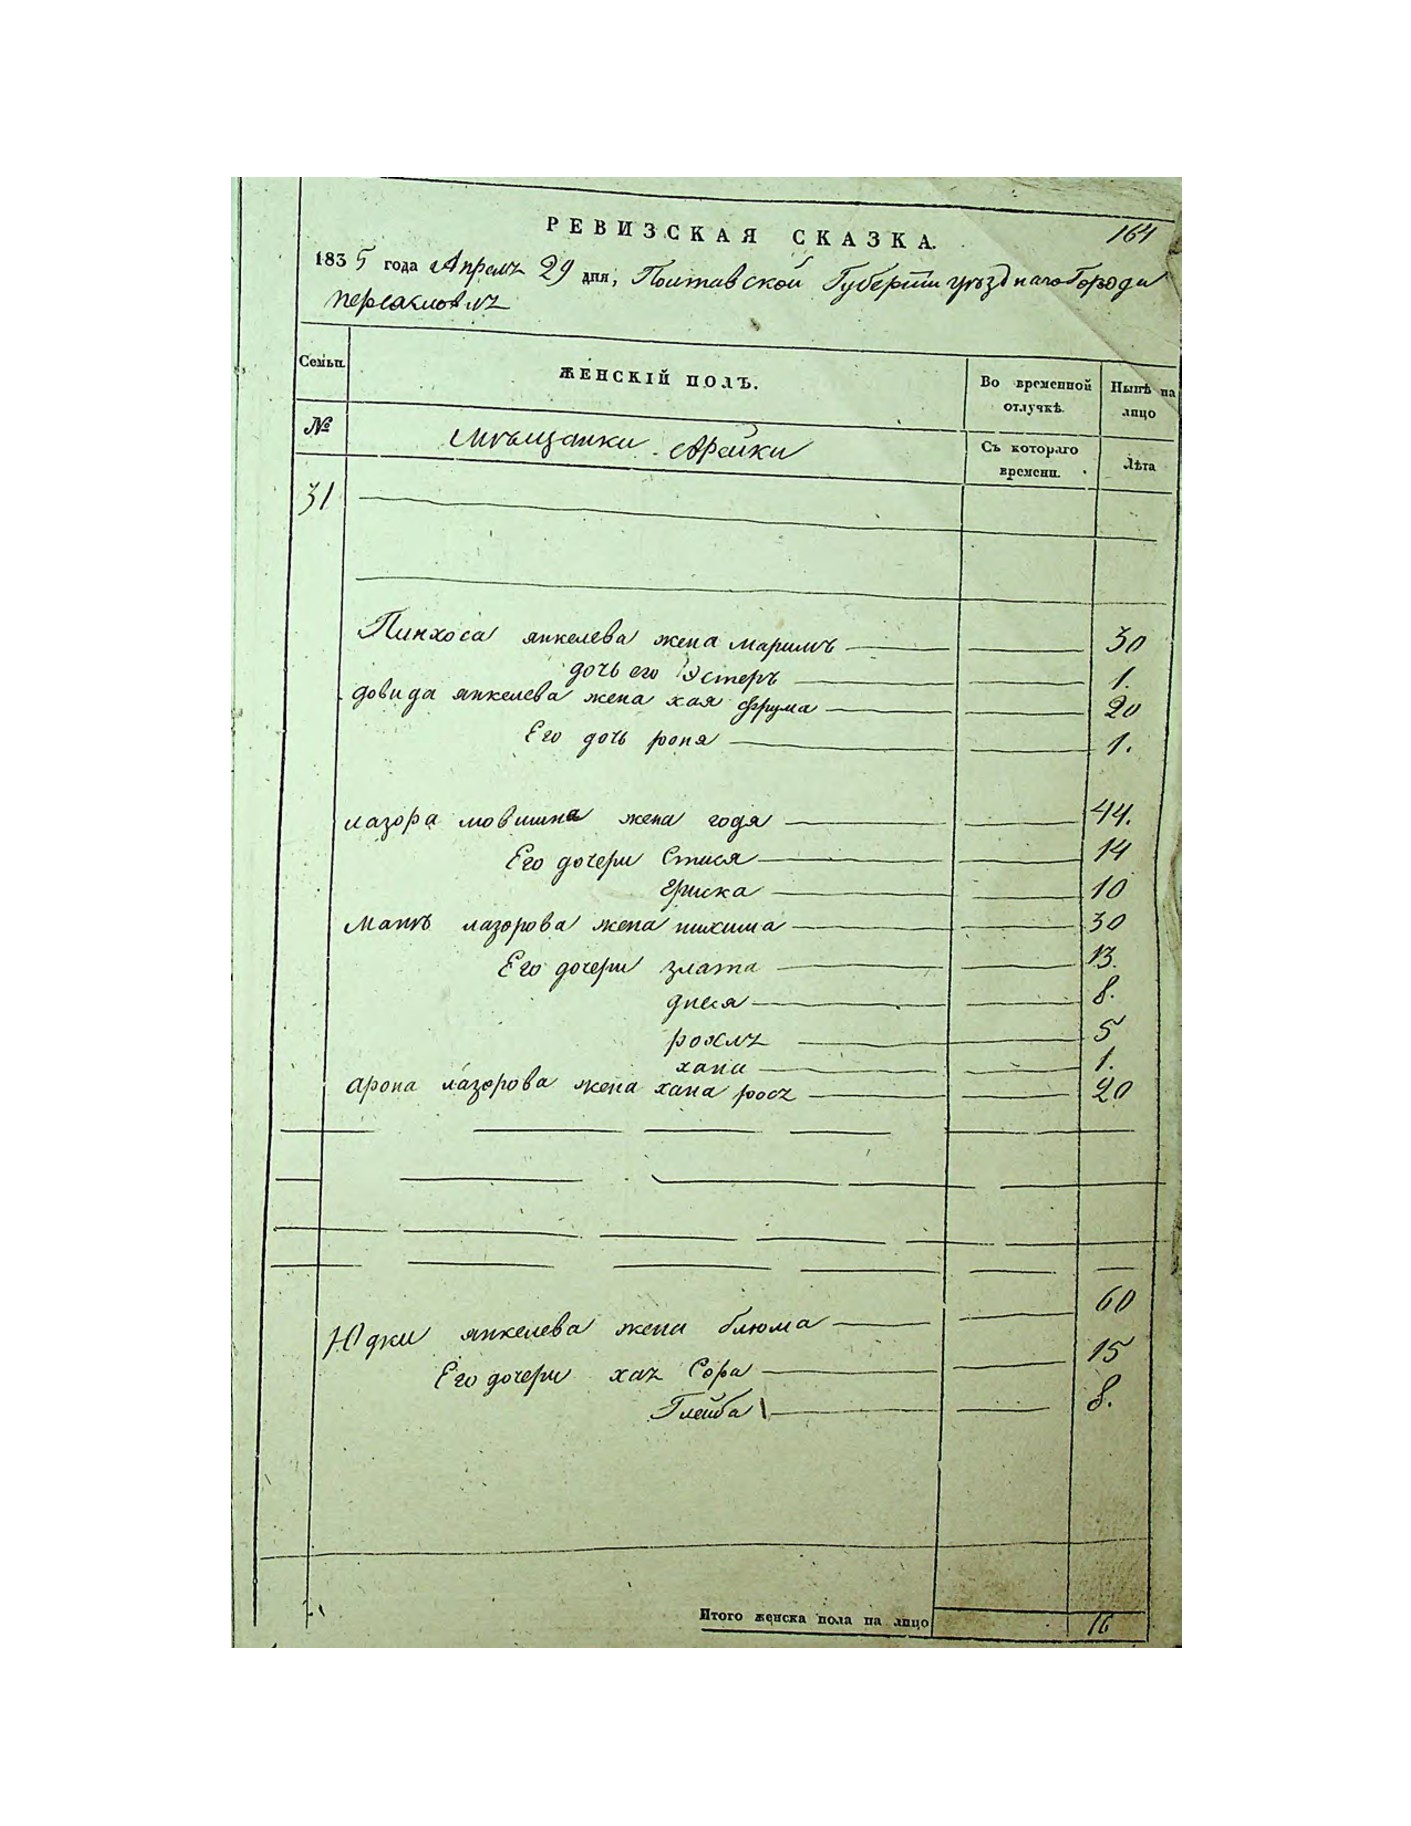 РЕВИЗСКАЯ СКАЗКА.
164
1835 года Апреля 29 дня, Полтавской Губернии уѣзднаго Города
Переяславля
Семьи.
ЖЕНСКІЙ ПОЛЪ.
Во временной отлучкѣ.
Нынѣ на лицо
№
Мѣщанки
Съ котораго времени.
Лѣта
31
Пинхоса янкелева жена маримъ 30
дочь его Эстеръ 1.
довида янкелева жена хая фрума 20
Его дочь роня 1.
лазора мовшина жена годя 44.
Его дочери Стися 14
10
лазорова жена 30
Его дочери злата 13.
днеся 8.
рохля 5
хана 1.
арона лазорова жена хана рося 20
Юдки янкелева жена блюма 60
Его дочери хая Сора 15
Глейба 8.
Итого женска пола на лицо 16